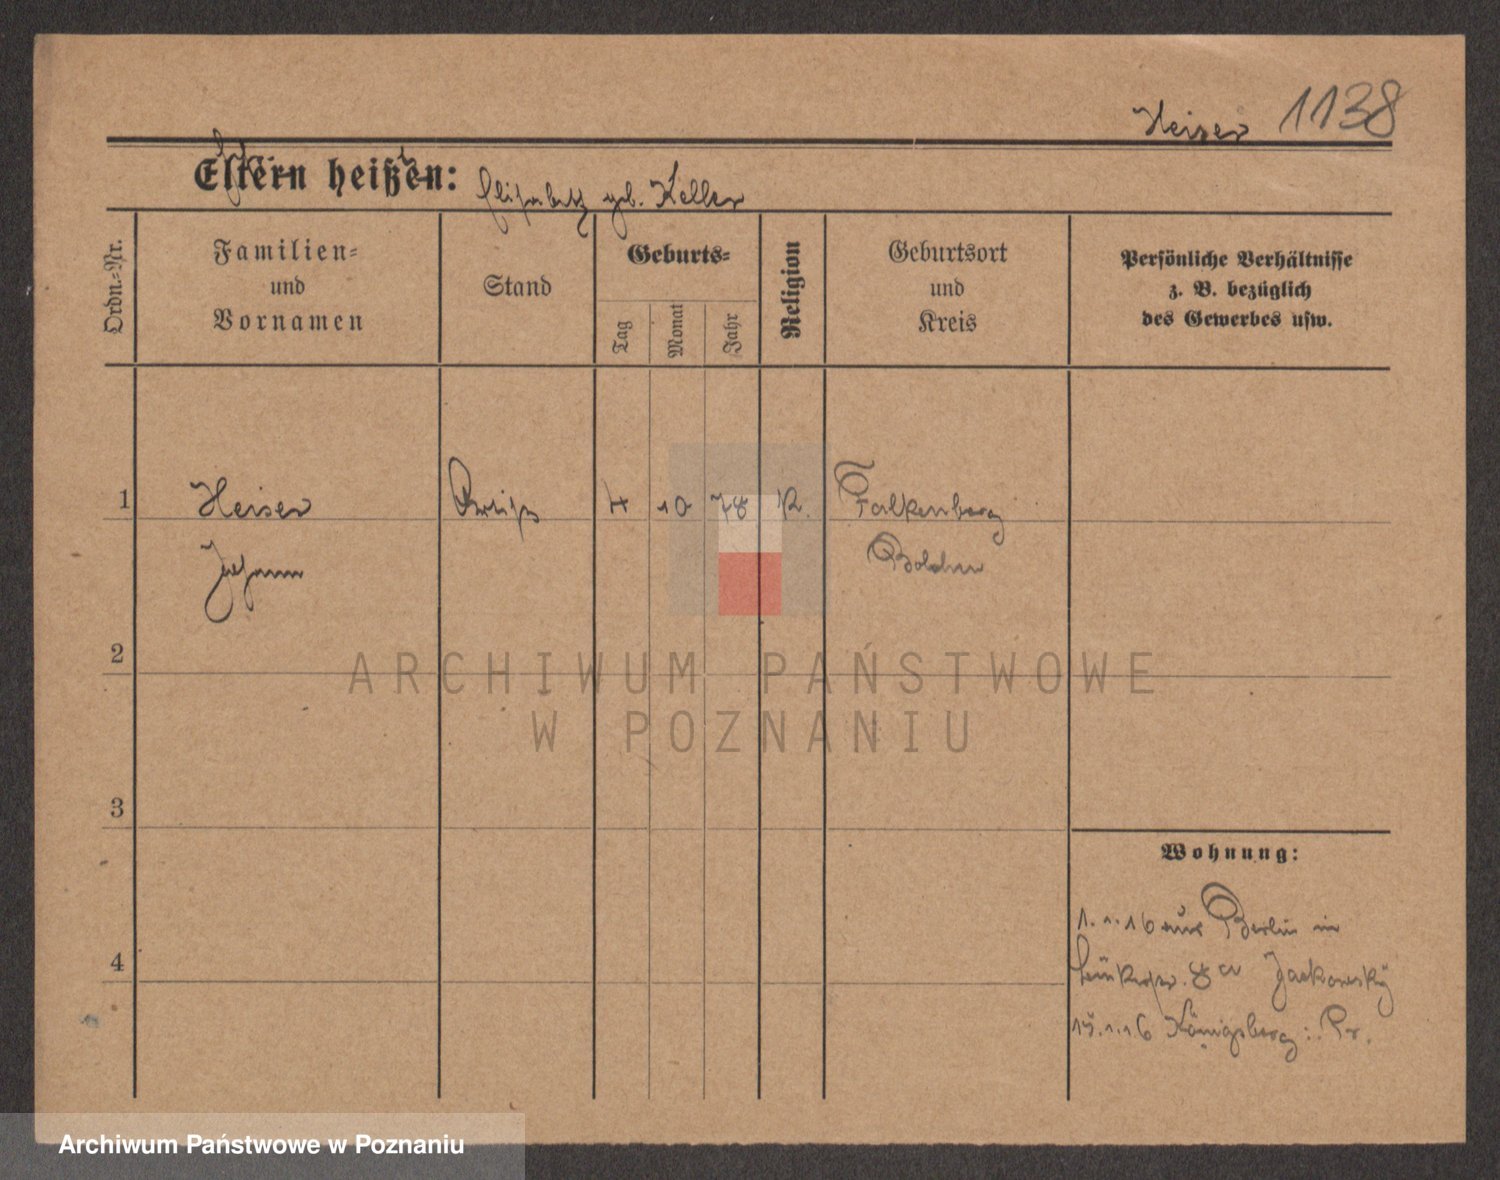 Heiser 1138
Eltern heißen:
Elisabeth geb. Keller
Ordn.=Nr.
Familien=
und
Vornamen
Stand
Geburts=
Tag
Monat
Jahr
Religion
Geburtsort
und
Kreis
Persönliche Verhältnisse
z. B. bezüglich
des Gewerbes usw.
1 Heiser Artist 4 10 78 K. Falkenberg
Johann Bolchen
2
3
4
ARCHIWUM PAŃSTWOWE
W POZNANIU
Wohnung:
1.1.16 aus Berlin in
8 a Jackowsky
15.1.16 Königsberg i. Pr.
Archiwum Państwowe w Poznaniu